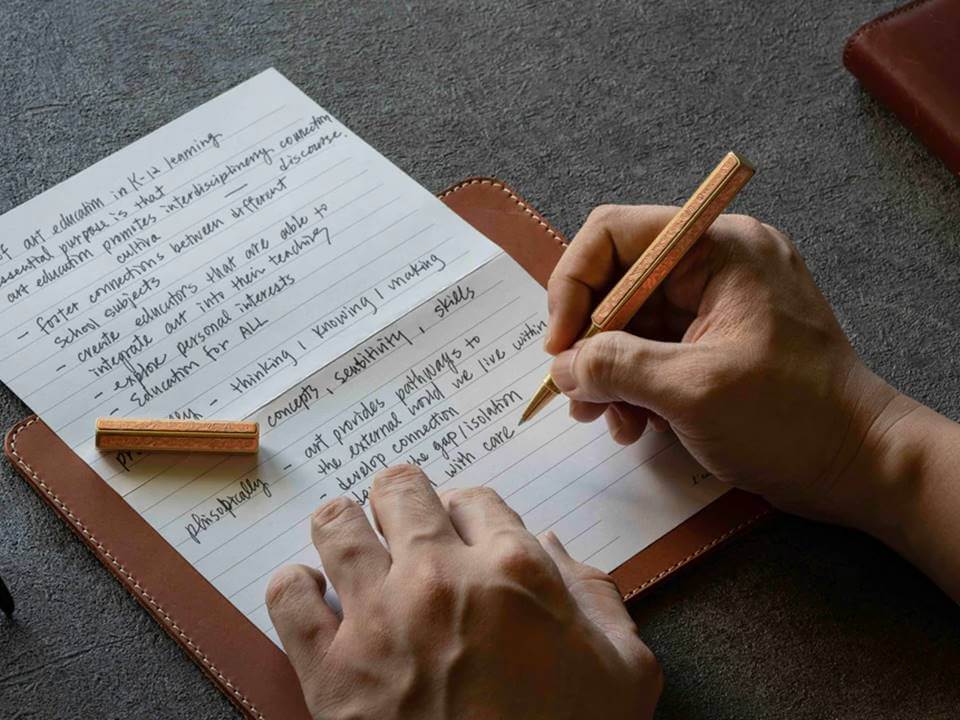 of art education in K-12 learning
essential purpose is that
art education promotes interdisciplinary connection
cultiva discourse.
- foster connections between different
school subjects
- create educators that are able to
integrate art into their teaching
- explore personal interests
- Education for ALL
- thinking / knowing / making
concepts, sensitivity, skills
phisopically
- art provides pathways to
the external world we live within
- develop connection
the gap/isolation
with care